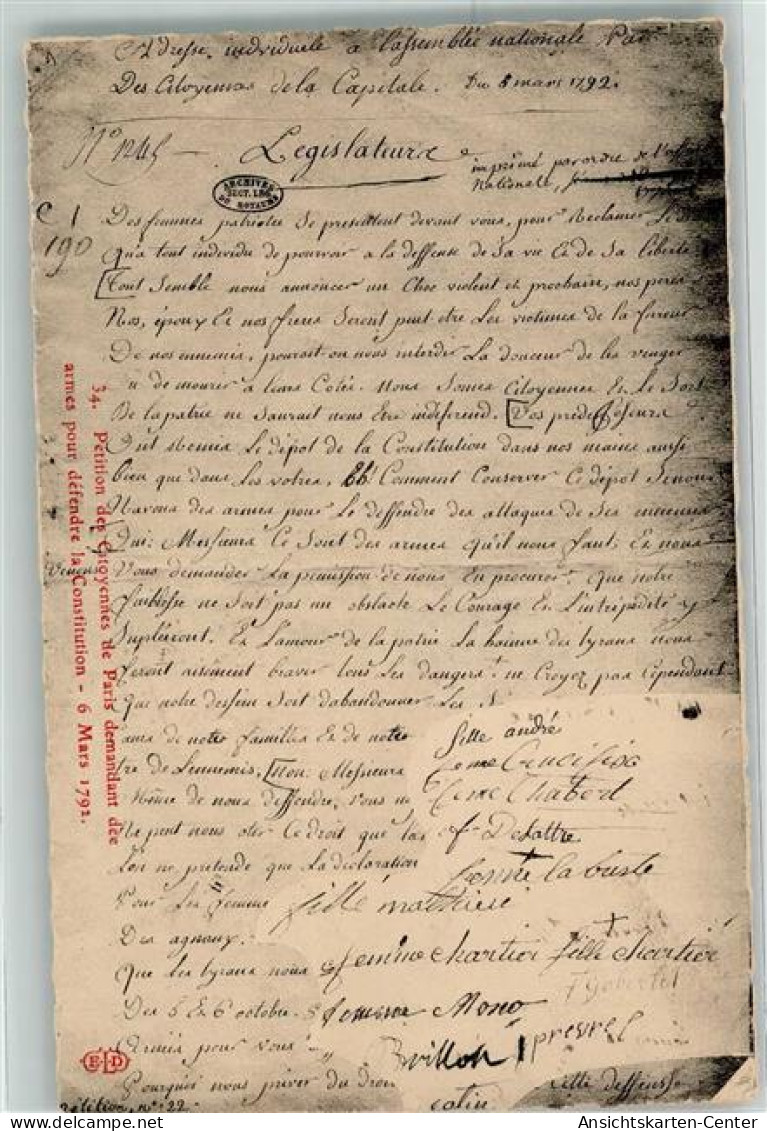 Adresse, individuele a l'assemblée nationale Par
Des Citoyennes de la Capitale. Du 6 mars 1792.
N° 1245 — Legislateurs
imprimé par ordre de
Nationale,
ARCHIVES
SECT. LEG.
DU ROYAUME
C I
190
Des femmes patriotes Se presentent devant vous, pour Reclamer Le
Qu'a tout individu de pourvoir a la deffense de Sa vie Et de Sa liberté
Tout Semble nous annoncer un Choc violent et prochain, nos peres
Nos, époux Et nos freres Seront peut etre Les victimes de la fureur
De nos ennemis, pourait on nous interdir La douceur de les venger
u de mourir a leurs Cotés. Nous Somes Citoyennes Et Le Sort
De la patrie ne Saurait nous Etre indiferend. Vos prédécéseurs
Ont Remis Le dépot de la Constitution dans nos mains aussi
bien que dans Les votres. Eh! Comment Conserver Ce dépot Si nous
Navons des armes pour Le deffendre des attaques de Ses ennemis
Oui: Messieurs Ce Sont des armes qu'il nous faut; Et nous
Venons Vous demander La permission de nous En procurer. Que notre
faiblesse ne Soit pas un obstacle Le Courage Et L'intrepidité y
Supléront. Et L'amour de la patrie La haine des tyrans nous
feront aisément braver tous Les dangers: ne Croyez pas Cependant
Que notre dessein Soit dabandonner Les
de notre familles Et de notre
de Lennemis. Non: Messieurs
de nous deffendre. Vous ne
Ne peut nous oter Ce droit que La
Lon ne pretende que La déclaration
Pour Les femme
Des agnaux.
Que les tyrans nous
Des 5 Et 6 octobre.
Armés pour vous
Pourquoi nous priver du droit
fille andré
feme Crucifix
feme Chabert
f. Delattre
femme la buste
fille mathieu
femme chartier fille chartier
femme Mono
Bvillon prevrel
cette deffense
catin
pétition, n°: 22
34. Pétition des Citoyennes de Paris demandant des
armes pour défendre la Constitution - 6 Mars 1792.
E D
Ansichtskarten-Center